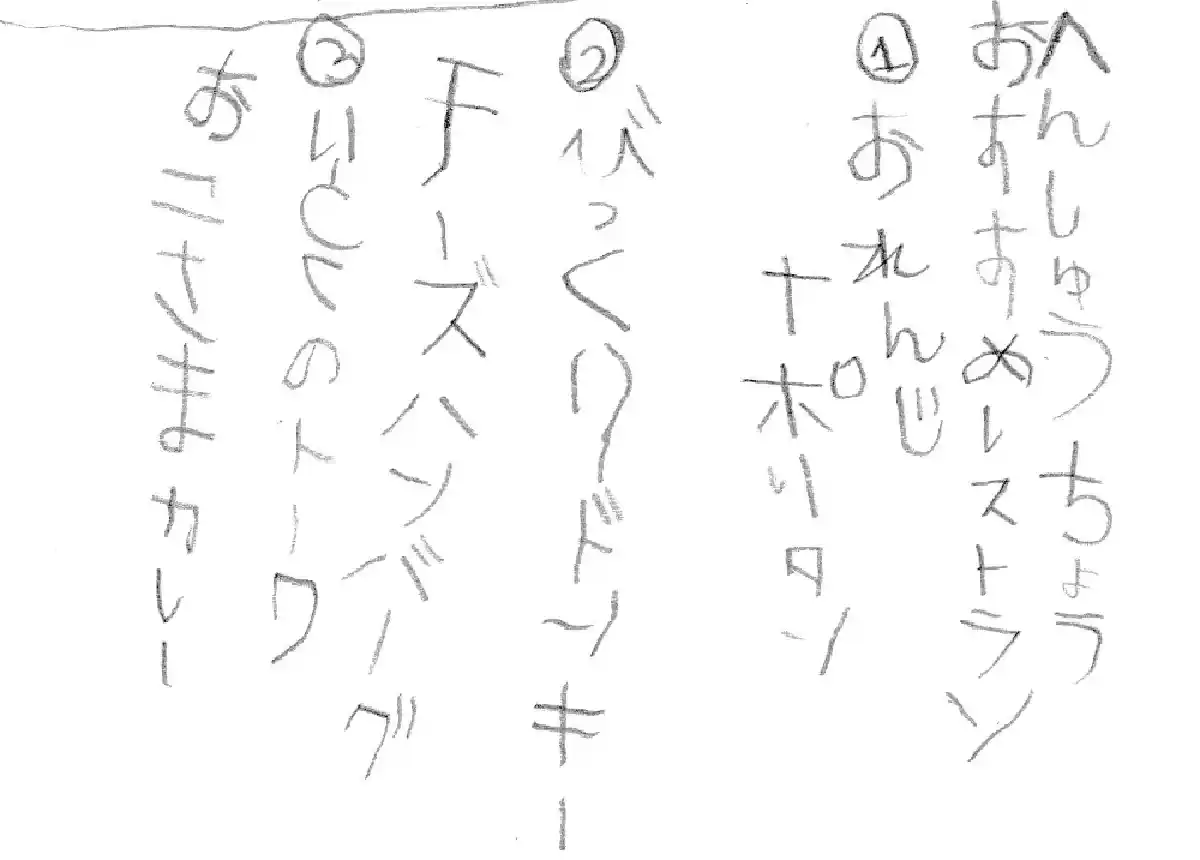 へんしゅうちょう
おすすめレストラン
① おれんじ
ナポリタン
② びっくりドンキー
チーズハンバーグ
③ いとくのトーワ
おこさまカレー